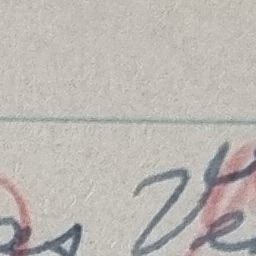 as Ve